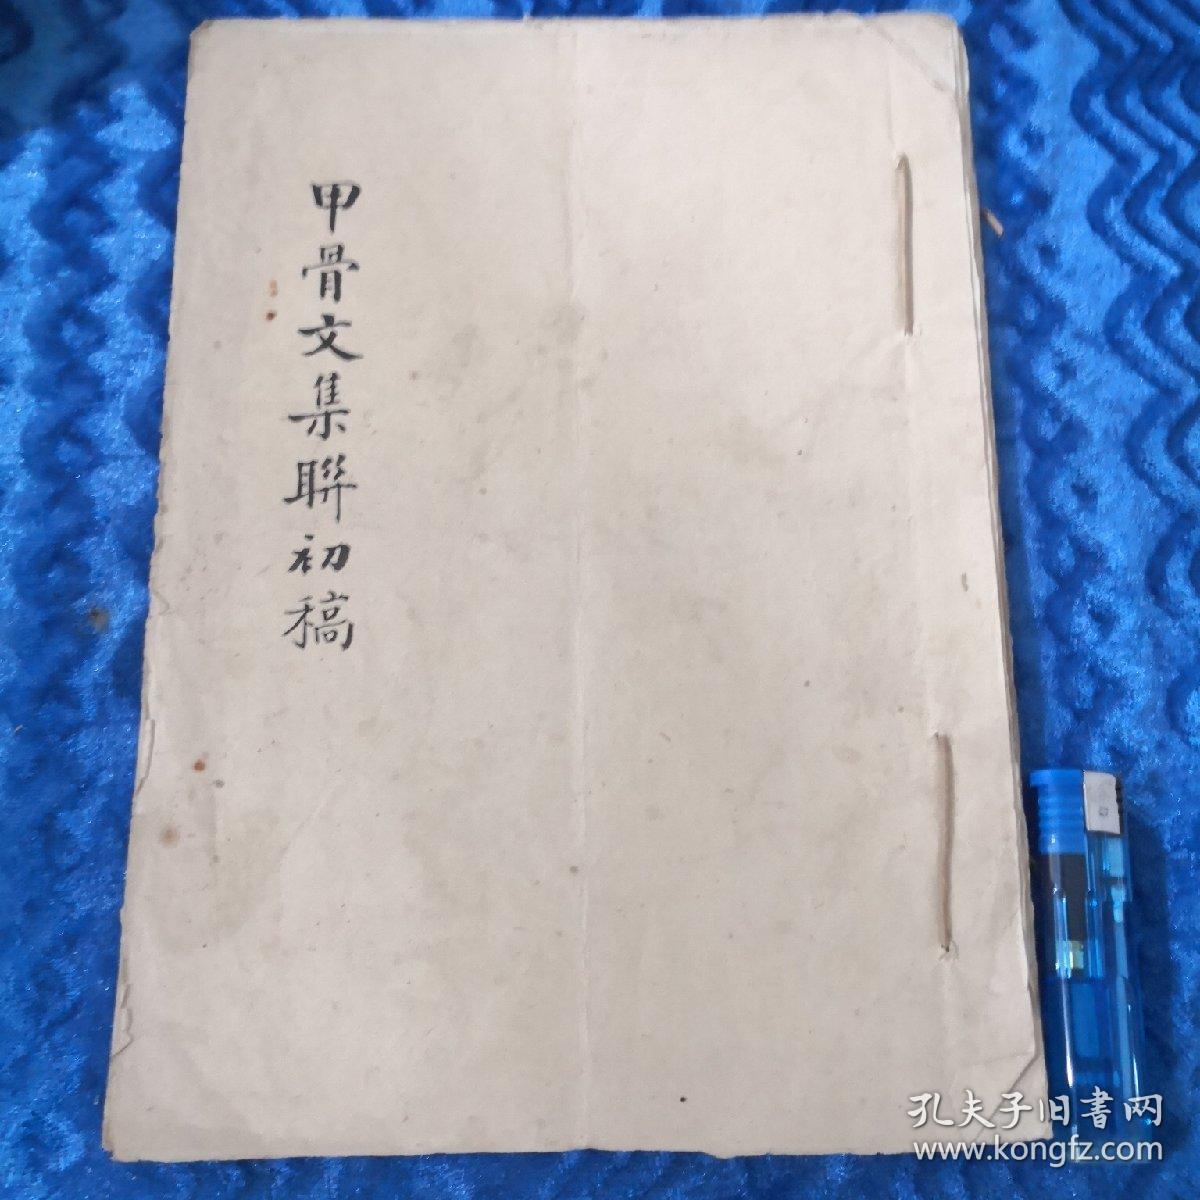 甲骨文集聯初稿
孔夫子旧書网
www.kongfz.com